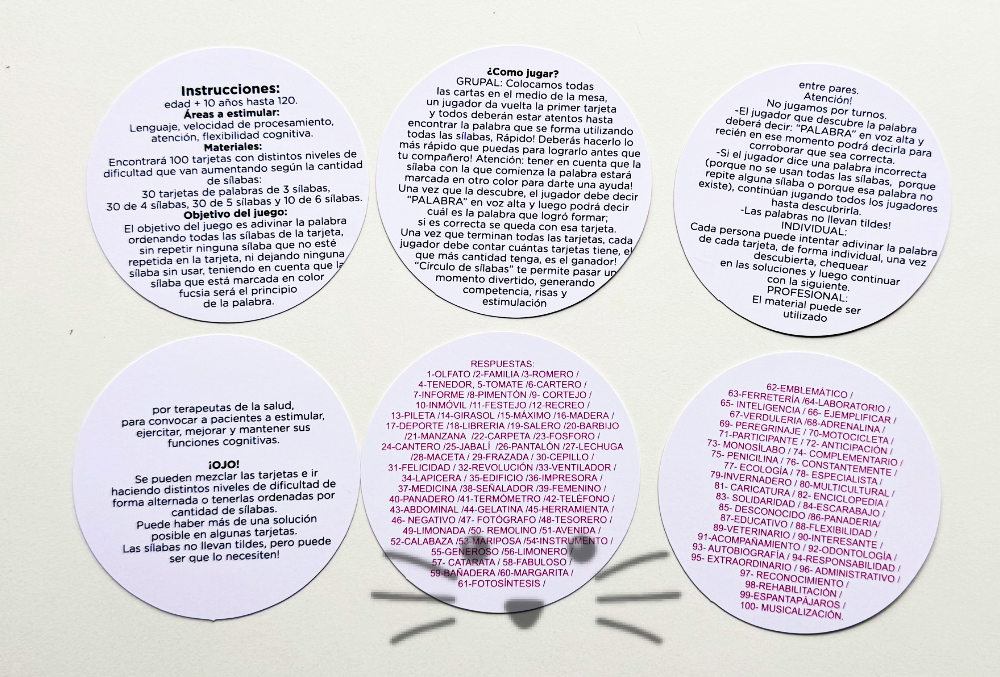 Instrucciones:
edad + 10 años hasta 120.
Áreas a estimular:
Lenguaje, velocidad de procesamiento,
atención, flexibilidad cognitiva.
Materiales:
Encontrará 100 tarjetas con distintos niveles de
dificultad que van aumentando según la cantidad
de sílabas:
30 tarjetas de palabras de 3 sílabas,
30 de 4 sílabas, 30 de 5 sílabas y 10 de 6 sílabas.
Objetivo del juego:
El objetivo del juego es adivinar la palabra
ordenando todas las sílabas de la tarjeta,
sin repetir ninguna sílaba que no esté
repetida en la tarjeta, ni dejando ninguna
sílaba sin usar, teniendo en cuenta que la
sílaba que está marcada en color
fucsia será el principio
de la palabra.
¿Como jugar?
GRUPAL: Colocamos todas
las cartas en el medio de la mesa,
un jugador da vuelta la primer tarjeta
y todos deberán estar atentos hasta
encontrar la palabra que se forma utilizando
todas las sílabas, Rápido! Deberás hacerlo lo
más rápido que puedas para lograrlo antes que
tu compañero! Atención: tener en cuenta que la
sílaba con la que comienza la palabra estará
marcada en otro color para darte una ayuda!
Una vez que la descubre, el jugador debe decir
"PALABRA" en voz alta y luego podrá decir
cuál es la palabra que logró formar;
si es correcta se queda con esa tarjeta.
Una vez que terminan todas las tarjetas, cada
jugador debe contar cuántas tarjetas tiene, el
que más cantidad tenga, es el ganador!
"Círculo de sílabas" te permite pasar un
momento divertido, generando
competencia, risas y
estimulación
entre pares.
Atención!
No jugamos por turnos.
-El jugador que descubre la palabra
deberá decir: "PALABRA" en voz alta y
recién en ese momento podrá decirla para
corroborar que sea correcta.
-Si el jugador dice una palabra incorrecta
(porque no se usan todas las sílabas, porque
repite alguna sílaba o porque esa palabra no
existe), continúan jugando todos los jugadores
hasta descubrirla.
-Las palabras no llevan tildes!
INDIVIDUAL:
Cada persona puede intentar adivinar la palabra
de cada tarjeta, de forma individual, una vez
descubierta, chequear
en las soluciones y luego continuar
con la siguiente.
PROFESIONAL:
El material puede ser
utilizado
por terapeutas de la salud,
para convocar a pacientes a estimular,
ejercitar, mejorar y mantener sus
funciones cognitivas.
¡OJO!
Se pueden mezclar las tarjetas e ir
haciendo distintos niveles de dificultad de
forma alternada o tenerlas ordenadas por
cantidad de sílabas.
Puede haber más de una solución
posible en algunas tarjetas.
Las sílabas no llevan tildes, pero puede
ser que lo necesiten!
RESPUESTAS:
1-OLFATO /2-FAMILIA /3-ROMERO /
4-TENEDOR, 5-TOMATE /6-CARTERO /
7-INFORME /8-PIMENTÓN /9- CORTEJO /
10-INMÓVIL /11-FESTEJO /12-RECREO /
13-PILETA /14-GIRASOL /15-MÁXIMO /16-MADERA /
17-DEPORTE /18-LIBRERIA /19-SALERO /20-BARBIJO
/21-MANZANA /22-CARPETA /23-FOSFORO /
24-CANTERO /25-JABALÍ /26-PANTALÓN /27-LECHUGA
/28-MACETA / 29-FRAZADA / 30-CEPILLO /
31-FELICIDAD / 32-REVOLUCIÓN /33-VENTILADOR /
34-LAPICERA / 35-EDIFICIO /36-IMPRESORA /
37-MEDICINA / 38-SEÑALADOR /39-FEMENINO /
40-PANADERO /41-TERMÓMETRO /42-TELÉFONO /
43-ABDOMINAL /44-GELATINA /45-HERRAMIENTA /
46- NEGATIVO /47- FOTÓGRAFO /48-TESORERO /
49-LIMONADA /50- REMOLINO /51-AVENIDA /
52-CALABAZA /53-MARIPOSA /54-INSTRUMENTO /
55-GENEROSO /56-LIMONERO /
57- CATARATA /58-FABULOSO /
59-BAÑADERA /60-MARGARITA /
61-FOTOSÍNTESIS /
62-EMBLEMÁTICO /
63-FERRETERÍA /64-LABORATORIO /
65- INTELIGENCIA / 66- EJEMPLIFICAR /
67-VERDULERIA /68-ADRENALINA /
69- PEREGRINAJE / 70-MOTOCICLETA /
71-PARTICIPANTE / 72-ANTICIPACIÓN /
73- MONOSÍLABO / 74- COMPLEMENTARIO /
75- PENICILINA / 76- CONSTANTEMENTE /
77- ECOLOGÍA / 78- ESPECIALISTA /
79-INVERNADERO / 80-MULTICULTURAL /
81- CARICATURA / 82- ENCICLOPEDIA /
83- SOLIDARIDAD / 84-ESCARABAJO /
85- DESCONOCIDO /86-PANADERIA/
87-EDUCATIVO / 88-FLEXIBILIDAD /
89-VETERINARIO / 90-INTERESANTE /
91-ACOMPAÑAMIENTO / 92-ODONTOLOGÍA /
93- AUTOBIOGRAFÍA / 94-RESPONSABILIDAD /
95- EXTRAORDINARIO / 96- ADMINISTRATIVO /
97- RECONOCIMIENTO /
98-REHABILITACIÓN /
99-ESPANTAPÁJAROS /
100- MUSICALIZACIÓN.